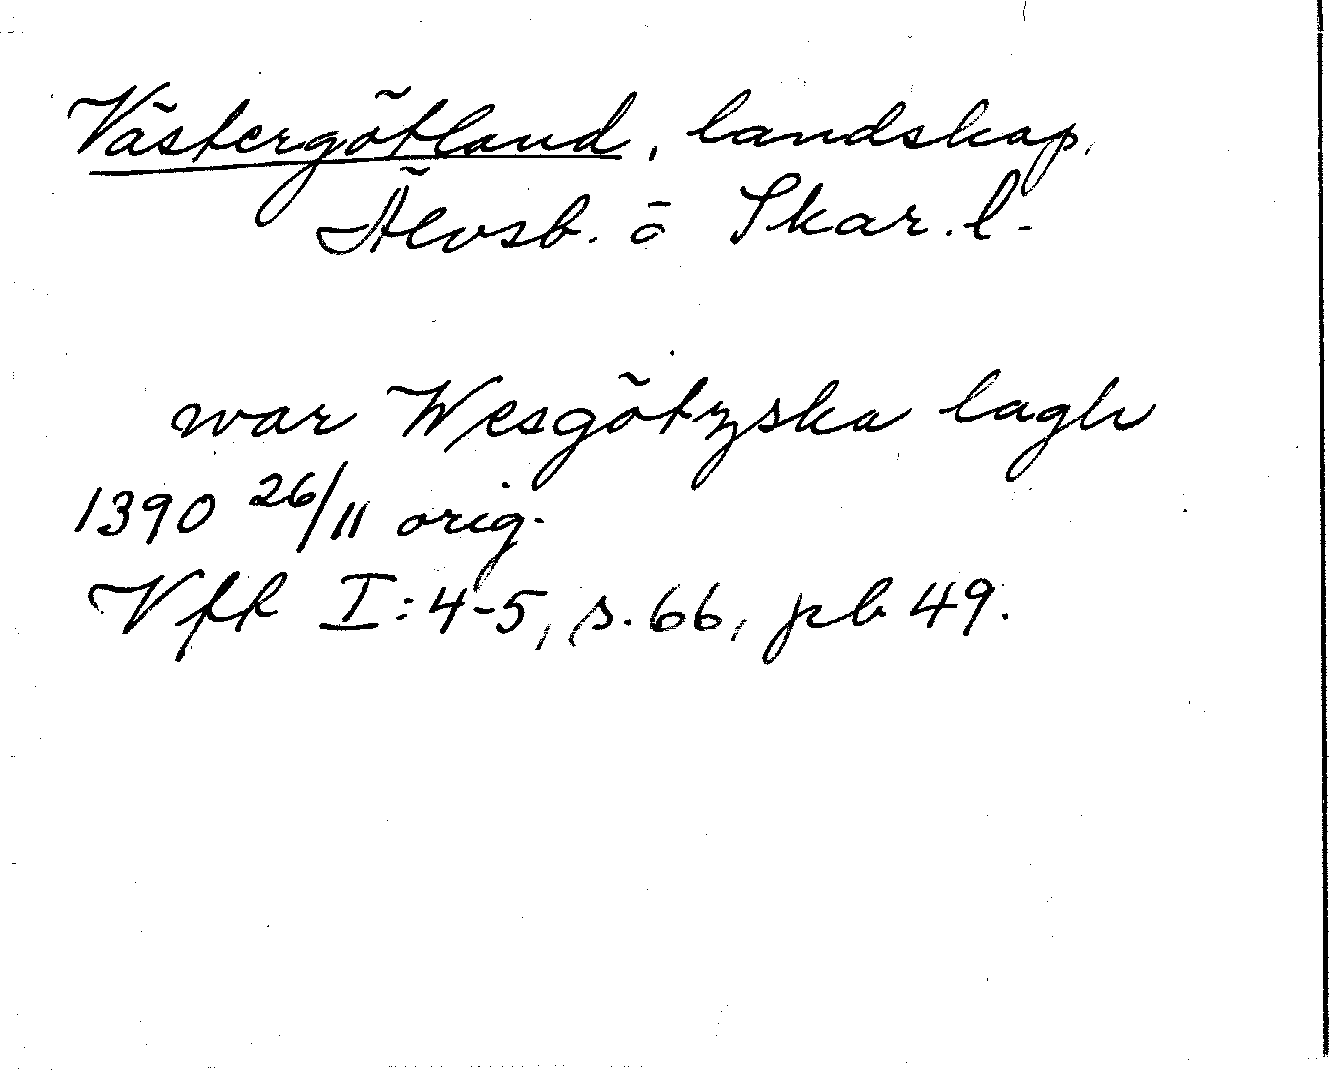 Västergötland, landskap,
Älvsb. o Skar. l.
war Wesgötzska lagh
1390 26/11 orig.
Vff I:4-5, s. 66, pb 49.